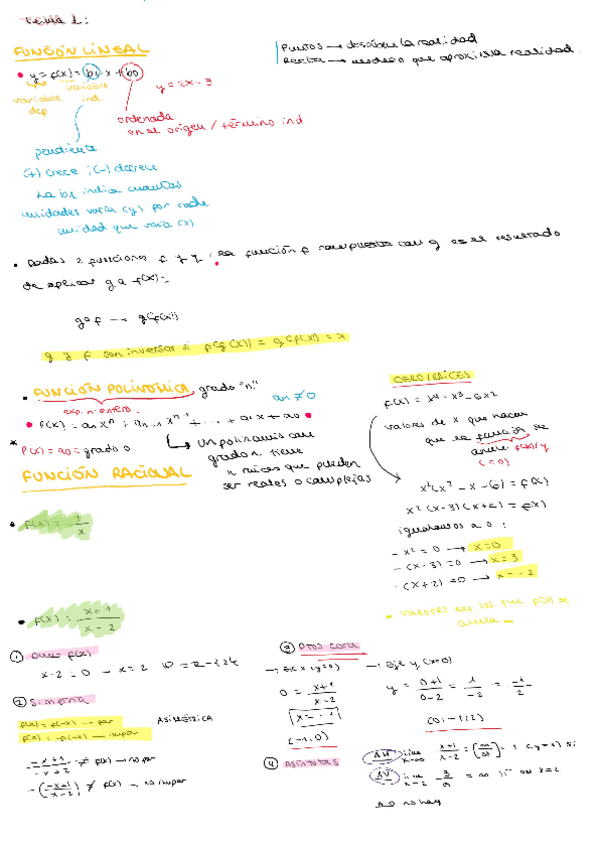 Tema 1:
FUNCIÓN LINEAL
Puntos → describen la realidad
Recta → modelo que aproxima la realidad.
• y = f(x) = b1 · x + b0
variable dep
variable ind.
y = 2x - 3
ordenada
en el origen / término ind
pendiente
(+) crece ; (-) decrece
La b1 indica cuantas
unidades varía (y) por cada
unidad que varía (x)
• Dadas 2 funciones f y g, la función f compuesta con g es el resultado
de aplicar g a f(x):
g∘f → g(f(x))
g y f son inversas si f(g(x)) = g(f(x)) = x
• FUNCIÓN POLINÓMICA, grado "n"
exp. n entero.
an ≠ 0
• f(x) = an xⁿ + an-1 xⁿ⁻¹ + ... + a1x + a0 •
* P(x) = a0 = grado 0
↳ Un polinomio con
grado n tiene
n raíces que pueden
ser reales o complejas
CERO/RAÍCES
f(x) = x⁴ - x³ - 6x²
valores de x que hacen
que la función se
anule f(x)/y
(=0)
x²(x² - x - 6) = f(x)
x²(x-3)(x+2) = f(x)
igualamos a 0:
- x² = 0 → x = 0
- (x-3) = 0 → x = 3
- (x+2) = 0 → x = -2
- valores en los que f(x) se
anula -
FUNCIÓN RACIONAL
• f(x) = 1/x
• f(x) = x+1 / x-2
① Dom f(x)
x-2 = 0 → x = 2 D = R - {2}
② Simetría
f(x) = f(-x) → par
f(x) = -f(-x) → impar
ASIMÉTRICA
-x+1 / -x-2 ≠ f(x) → no par
-(-x+1 / -x-2) ≠ f(x) → no impar
③ Ptos corte
→ Eje x (y=0)
0 = x+1 / x-2
x = -1
(-1,0)
→ Eje y (x=0)
y = 0+1 / 0-2 = 1 / -2 = -1 / 2
(0, -1/2)
④ ASÍNTOTAS
AH lim x→∞ x+1 / x-2 = (∞/∞) = 1 (y=1) si
AV lim x→2 3/0 = ∞ si en x=2
AO no hay